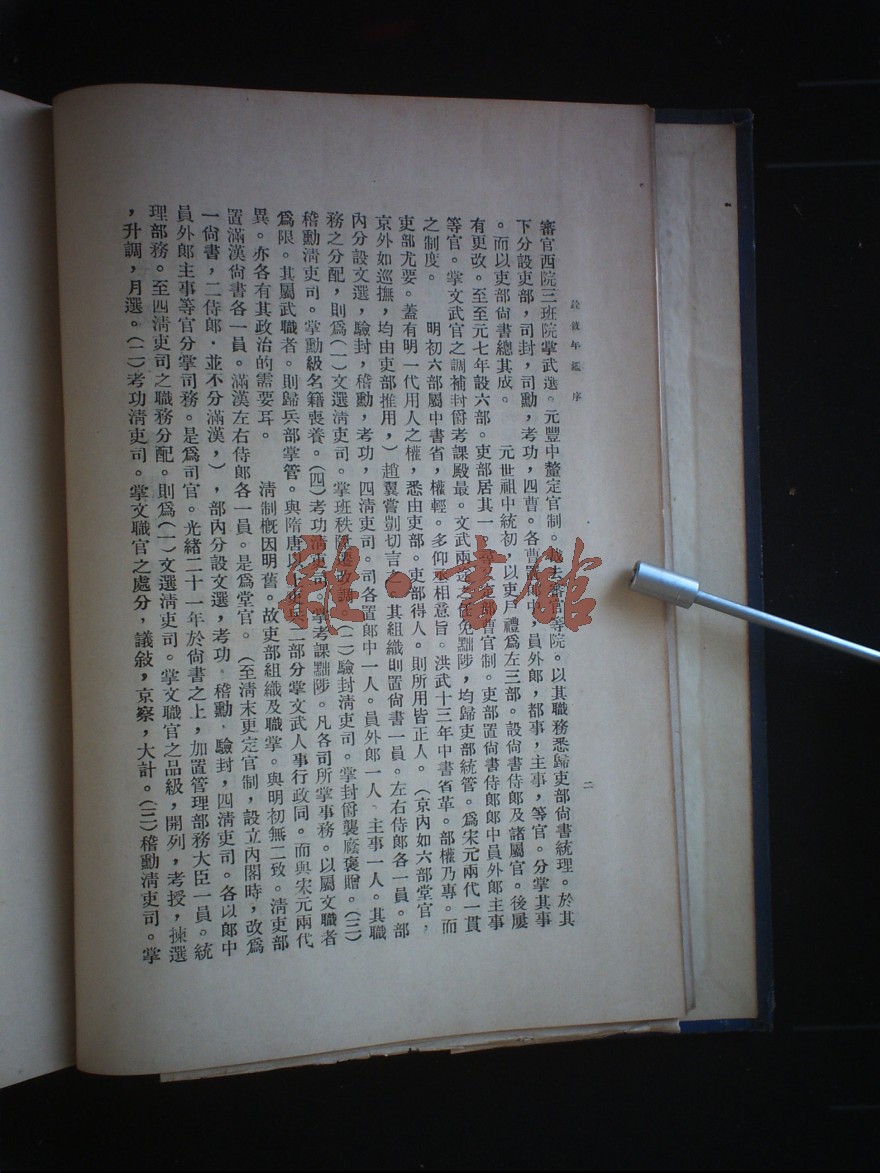 銓敘年鑑 序
二
審官西院三班院掌武選。元豐中釐定官制。審官等院。以其職務悉歸吏部尚書統理。於其
下分設吏部，司封，司勳，考功，四曹。各曹員外郎，都事，主事，等官。分掌其事
。而以吏部尚書總其成。 元世祖中統初，以吏戶禮爲左三部。設尚書侍郎及諸屬官。後屢
有更改。至至元七年設六部。吏部居其一。部曹官制。吏部置尚書侍郎郎中員外郎主事
等官。掌文武官之調補封爵考課殿最。文武兩途之任免黜陟，均歸吏部統管。爲宋元兩代一貫
之制度。 明初六部屬中書省，權輕。多仰承相意旨。洪武十三年中書省革。部權乃專。而
吏部尤要。蓋有明一代用人之權，悉由吏部。吏部得人。則所用皆正人。（京內如六部堂官，
京外如巡撫，均由吏部推用，）趙翼嘗剴切言。其組織則置尚書一員。左右侍郎各一員。部
內分設文選，驗封，稽勳，考功，四清吏司。司各置郎中一人。員外郎一人、主事一人。其職
務之分配，則爲（一）文選清吏司。掌班秩（二）驗封清吏司。掌封爵襲廕褒贈。（三）
稽勳清吏司。掌勳級名籍喪養。（四）考功清吏司。掌考課黜陟。凡各司所掌事務。以屬文職者
爲限。其屬武職者。則歸兵部掌管。與隋唐以上吏兵二部分掌文武人事行政同。而與宋元兩代
異。亦各有其政治的需要耳。 清制槪因明舊。故吏部組織及職掌。與明初無二致。清吏部
置滿漢尚書各一員。滿漢左右侍郎各一員。是爲堂官。（至清末更定官制，設立內閣時，改爲
一尚書，二侍郎，並不分滿漢，），部內分設文選，考功，稽勳，驗封，四清吏司。各以郎中
員外郎主事等官分掌司務。是爲司官。光緒二十一年於尚書之上，加置管理部務大臣一員。統
理部務。至四清吏司之職務分配。則爲（一）文選清吏司。掌文職官之品級，開列，考授，揀選
，升調，月選。（二）考功清吏司。掌文職官之處分，議敍，京察，大計。（三）稽勳清吏司。掌
雜·書館